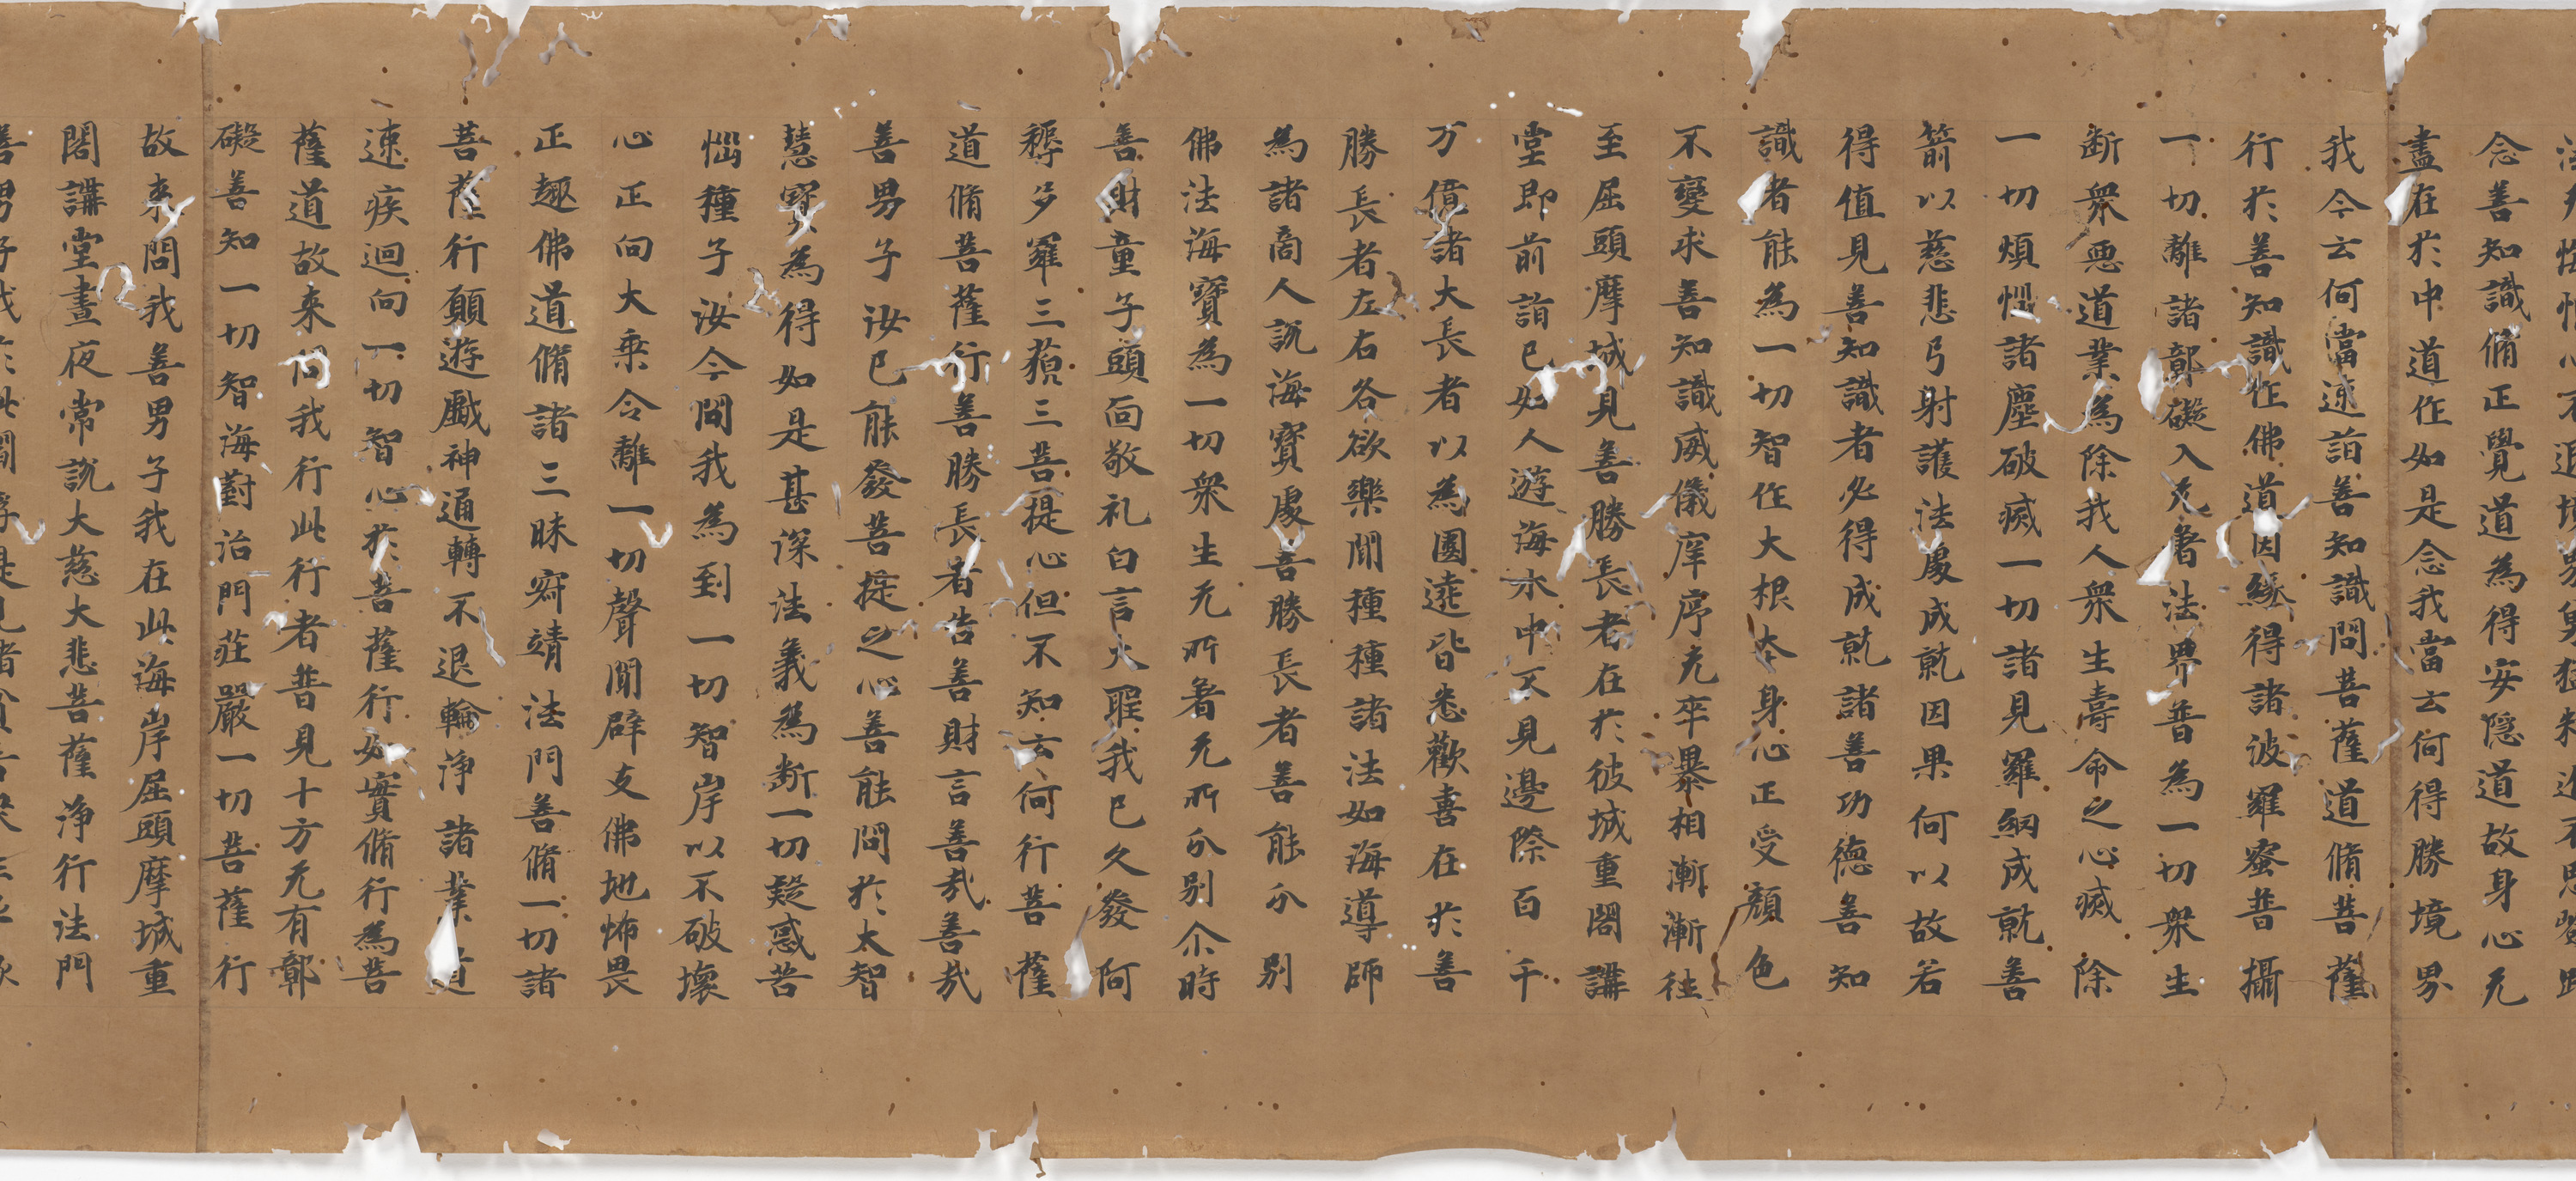 念善知識脩正覺道為得安隱道故身心无
盡在於中道作如是念我當云何得勝境界
我今云何當速詣善知識問菩薩道脩菩薩
行於善知識生佛道因緣得諸波羅蜜普攝
一切離諸鄣礙入无著法界普為一切衆生
断衆惡道業為除我人衆生壽命之心滅除
一切煩惱諸塵破滅一切諸見羅網成就善
箭以慈悲弓射護法處成就因果何以故若
得值見善知識者必得成就諸善功德善知
識者能為一切智作大根本身心正受顏色
不變求善知識威儀庠序无卒暴相漸漸往
至屈頭摩城見善勝長者在於彼城重閣講
堂即前詣已如人遊海水中不見邊際百千
万億諸大長者以為圍遶皆悉歡喜在於善
勝長者左右各欲樂聞種種諸法如海導師
為諸商人說海寶處善勝長者善能分別
佛法海寶為一切衆生无所著无所分別尒時
善財童子頭面敬礼白言大聖我已久發阿
耨多羅三藐三菩提心但不知云何行菩薩
道脩菩薩行善勝長者告善財言善哉善哉
善男子汝已能發菩提之心善能問於太智
慧寶為得如是甚深法義為断一切疑惑苦
惱種子汝今問我為到一切智岸以不破壞
心正向大乘令離一切聲聞辟支佛地怖畏
正趣佛道脩諸三昧寂靖法門善脩一切諸
菩薩行願遊戲神通轉不退輪淨諸業道
速疾迴向一切智心於菩薩行如實脩行為菩
薩道故来問我行此行者普見十方无有鄣
礙善知一切智海對治門莊嚴一切菩薩行
故来問我善男子我在此海岸屈頭摩城重
閣講堂晝夜常說大慈大悲菩薩淨行法門